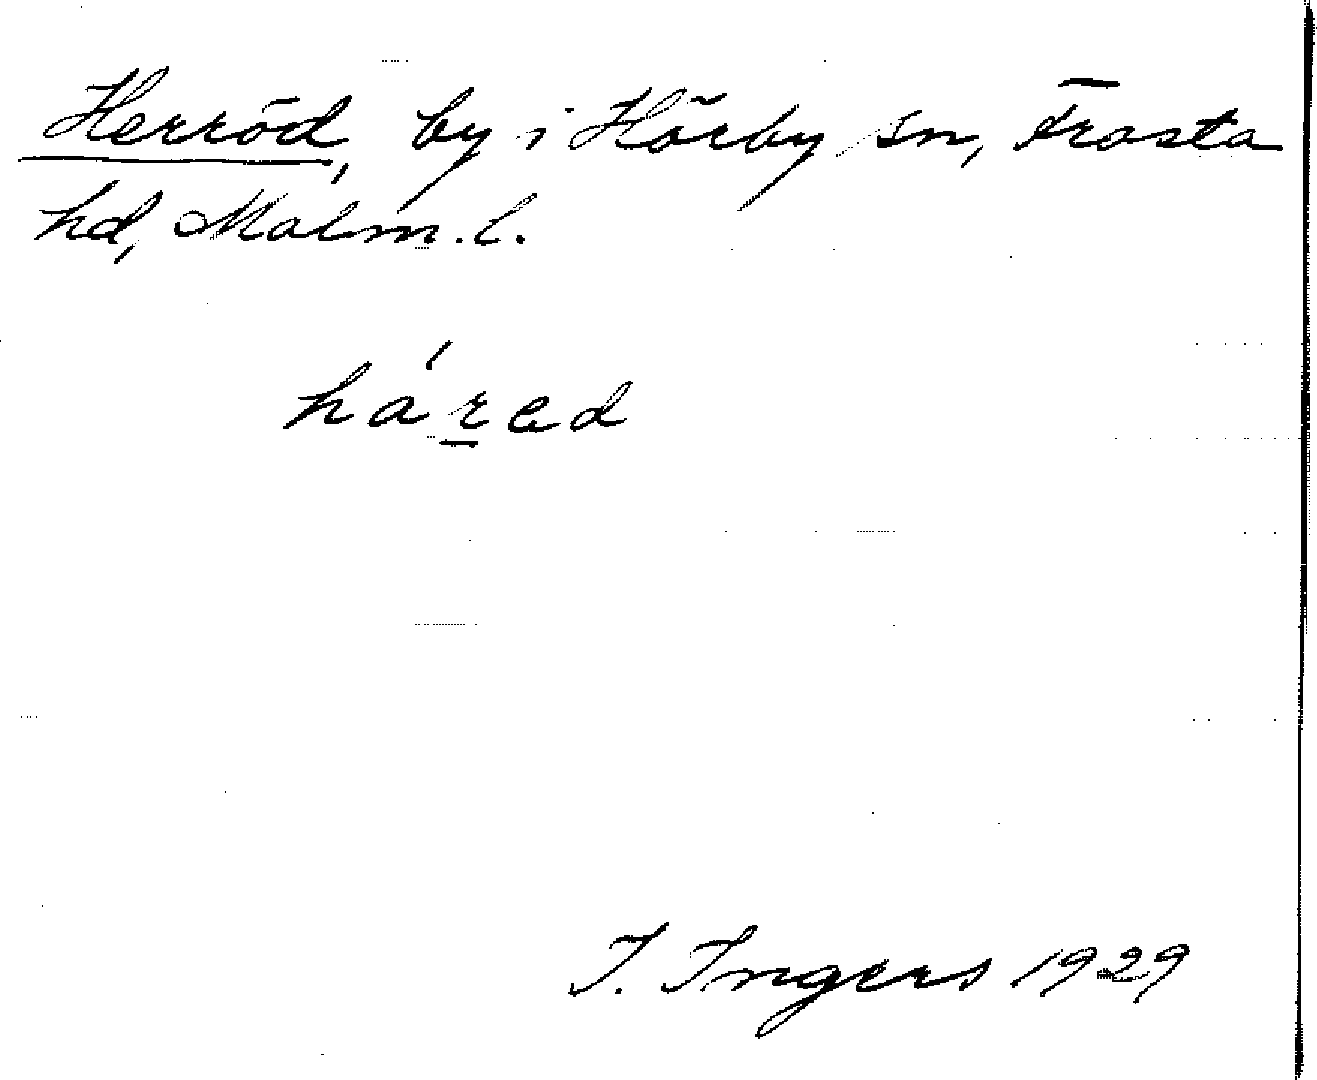 Herröd, by i Hörby sn, Frosta
hd, Malm. l.
há<u>r</u>ed
I. Ingers 1929